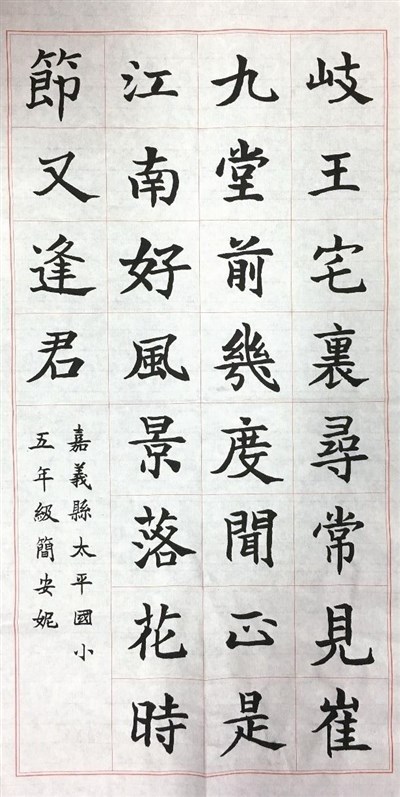 岐王宅裏尋常見崔
九堂前幾度聞正是
江南好風景落花時
節又逢君
嘉義縣太平國小
五年級簡安妮